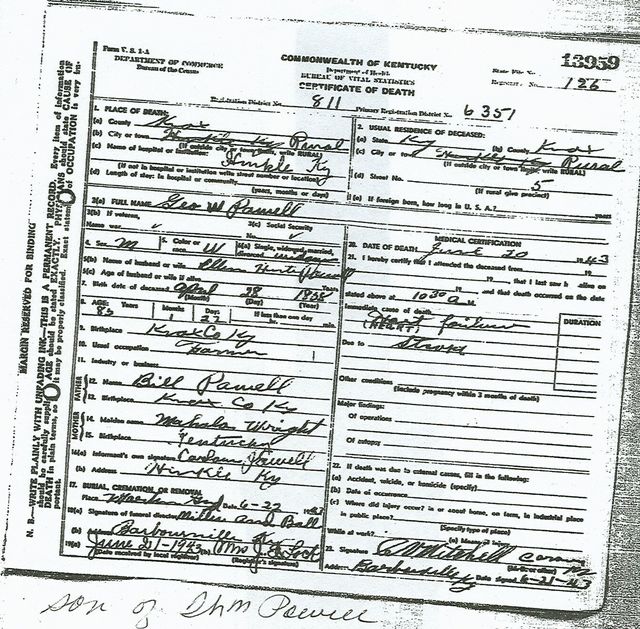 Form V. S. 1-A
DEPARTMENT OF COMMERCE
Bureau of the Census
COMMONWEALTH OF KENTUCKY
Department of Health
BUREAU OF VITAL STATISTICS
CERTIFICATE OF DEATH
13959
State File No.
Registrar's No. 126
Registration District No. 811
Primary Registration District No. 6351
MARGIN RESERVED FOR BINDING
N. B.—WRITE PLAINLY WITH UNFADING INK—THIS IS A PERMANENT RECORD. Every item of information
should be carefully supplied. AGE should be stated EXACTLY. PHYSICIANS should state CAUSE OF
DEATH in plain terms, so it may be properly classified. Exact statement of OCCUPATION is very im-
portant.
1. PLACE OF DEATH:
(a) County Knox
(b) City or town Rural
(If outside city or town limits, write RURAL)
(c) Name of hospital or institution: Hinkle Ky
(If not in hospital or institution write street number or location)
(d) Length of stay: in hospital or community
(years, months or days)
2. USUAL RESIDENCE OF DECEASED:
(a) State Ky (b) County Knox
(c) City or town Rural
(If outside city or town limits, write RURAL)
(d) Street No. 5
(If rural give precinct)
(e) If foreign born, how long in U. S. A.? years
3(a) FULL NAME Geo W Powell
3(b) If veteran,
Name war
3(c) Social Security
No.
4. Sex M
5. Color or race W
6(a) Single, widowed, married, divorced
6(b) Name of husband or wife
6(c) Age of husband or wife if alive Years
7. Birth date of deceased April 28 1858
(Month) (Day) (Year)
8. AGE: Years 85 Months 1 Days 22 If less than one day
hr. min.
9. Birthplace Knox Co Ky
10. Usual occupation Farmer
11. Industry or business
FATHER
12. Name Bill Powell
13. Birthplace Knox Co Ky
MOTHER
14. Maiden name Mahala Wright
15. Birthplace Kentucky
16(a) Informant's own signature Powell
(b) Address Hinkle Ky
17. BURIAL, CREMATION, OR REMOVAL
Place Date 6-22 1943
18(a) Signature of funeral director Miller and Ball
(b) Barbourville Ky
19(a) June 21-1943 (b) Mrs
(Date received by local registrar) (Registrar's signature)
MEDICAL CERTIFICATION
20. DATE OF DEATH June 20 1943
21. I hereby certify that I attended the deceased from
19 , to 19 , that I last saw h alive on
19 , and that death occurred on the date
stated above at 10 30 a M.
Immediate cause of death
Heart failure
(HEART)
DURATION
Due to Stroke
Other conditions
(Include pregnancy within 3 months of death)
Major findings:
Of operations
Of autopsy
22. If death was due to external causes, fill in the following:
(a) Accident, suicide, or homicide (specify)
(b) Date of occurrence
(c) Where did injury occur? in or about home, on farm, in industrial place
in public place?
(Specify type of place)
While at work? (e) Means of injury
23. Signature Mitchell
(M. D. or other)
Address Barbourville Ky Date signed 6-21-43
son of Powell